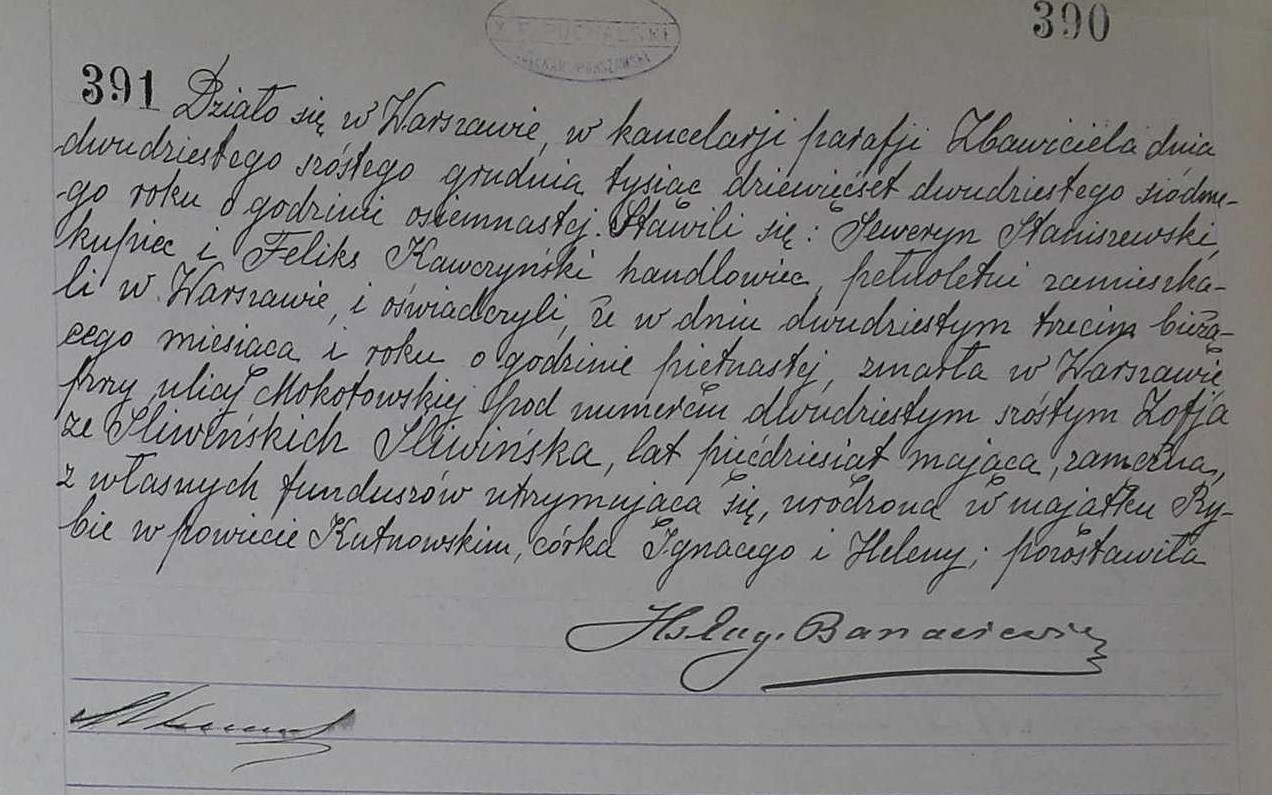 390
X. F. PUCHALSKI
391 Działo się w Warszawie, w kancelarji parafji Zbawiciela dnia
dwudziestego szóstego grudnia tysiąc dziewięćset dwudziestego siódme-
go roku o godzinie osiemnastej. Stawili się: Seweryn Staniszewski,
kupiec i Feliks Kawczyński handlowiec, pełnoletni zamieszka-
li w Warszawie, i oświadczyli, że w dniu dwudziestym trzecim bieżą-
cego miesiąca i roku o godzinie piętnastej, zmarła w Warszawie,
przy ulicy Mokotowskiej pod numerem dwudziestym szóstym Zofja
ze Śliwińskich Śliwińska, lat pięćdziesiąt mająca, zamężna,
z własnych funduszów utrzymująca się, urodzona w majątku Ry-
bie w powiecie Kutnowskim, córka Ignacego i Heleny; pozostawiła